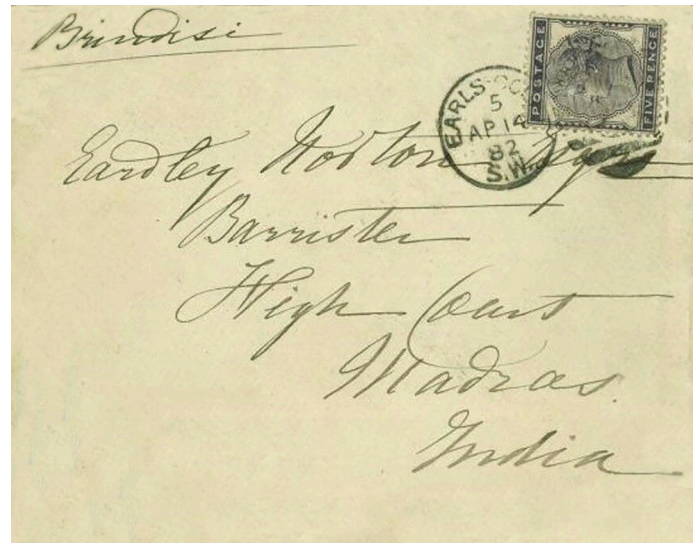 Brindisi
POSTAGE
FIVE PENCE
EARLS CO
5
AP 14
82
S.W.
Eardley Norton Esqre
Barrister
High Court
Madras.
India